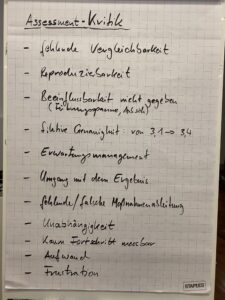 Assessment-Kritik
- fehlende Vergleichbarkeit
- Reproduzierbarkeit
- Beeinflussbarkeit nicht gegeben
(Führungsspanne,
- fiktive Genauigkeit: von 3,1 → 3,4
- Erwartungsmanagement
- Umgang mit dem Ergebnis
- fehlende/falsche Maßnahmenableitung
- Unabhängigkeit
- Kaum Fortschritt messbar
- Aufwand
- Frustration
STAPLES